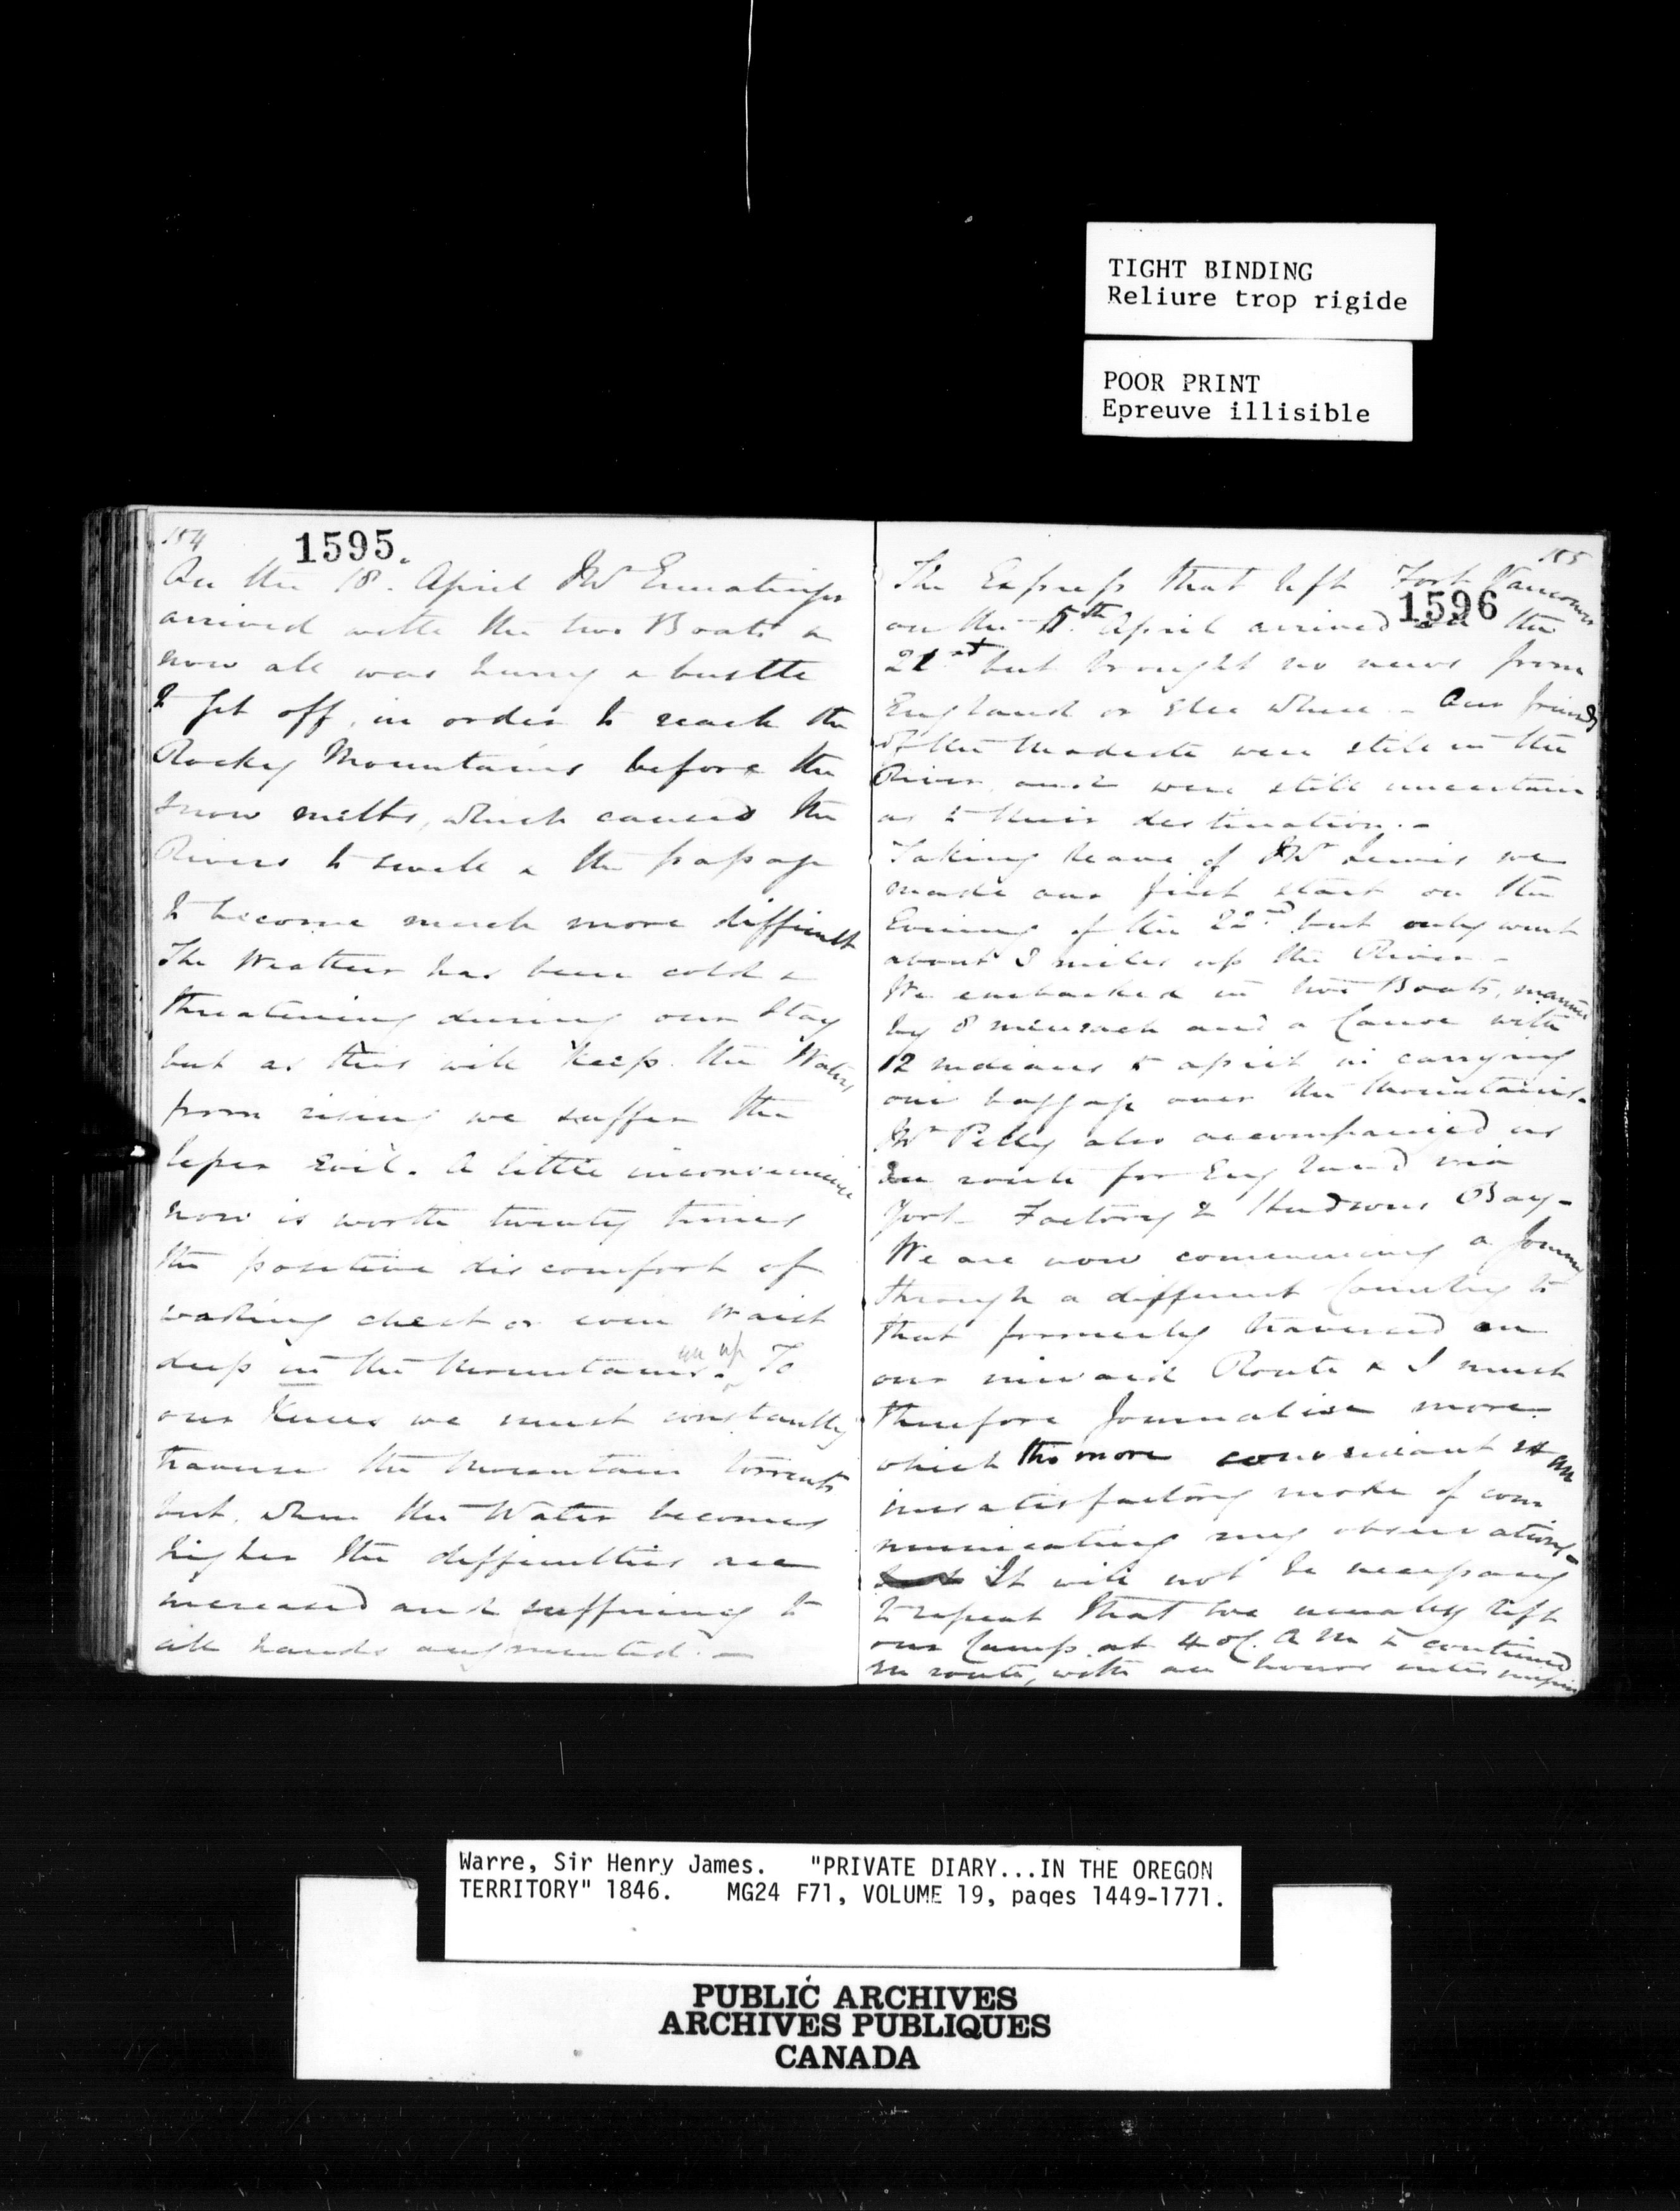 TIGHT BINDING
Reliure trop rigide
POOR PRINT
Epreuve illisible
154
1595.
On the 18. April Mr Ermatinger
arrived with the two Boats &
now all was hurry & bustle
to get off, in order to reach the
Rocky Mountains before the
snow melts, which caused the
Rivers to swell & the passage
to become much more difficult
The Weather has been cold &
threatening during our stay
but as this will keep the Waters
from rising we suffer the
lesser evil. A little inconvenience
now is worth twenty times
the positive discomfort of
wading chest or even waist
deep in the Mountains. To
our Knees we must constantly
traverse the Mountain torrents
but, when the Water becomes
higher the difficulties are
increased and suffering to
all hands augmented. —
155
1596
The Express that left Fort Vancouver
on the 5th April arrived on the
21st but brought no news from
England or else where — Our friends
of the Modeste were still in the
River and were still uncertain
as to their destination. —
Taking leave of Mr Lewis we
made our first start on the
Evening of the 22nd but only went
about 3 miles up the River —
We embarked in two Boats, manned
by 8 men each and a Canoe with
12 Indians to assist in carrying
our baggage over the Mountains —
Mr Pelly also accompanied us
en route for England via
York Factory & Hudsons Bay —
We are now commencing a Journey
through a different Country to
that formerly traversed on
our inward Route & I must
therefore Journalise more
which tho more convenient is an
unsatisfactory mode of com
municating my observations —
It will not be necessary
to repeat that we usually left
our Camp at 4 oC. A M & continued
en route, with an hours
Warre, Sir Henry James. "PRIVATE DIARY...IN THE OREGON
TERRITORY" 1846. MG24 F71, VOLUME 19, pages 1449-1771.
PUBLIC ARCHIVES
ARCHIVES PUBLIQUES
CANADA